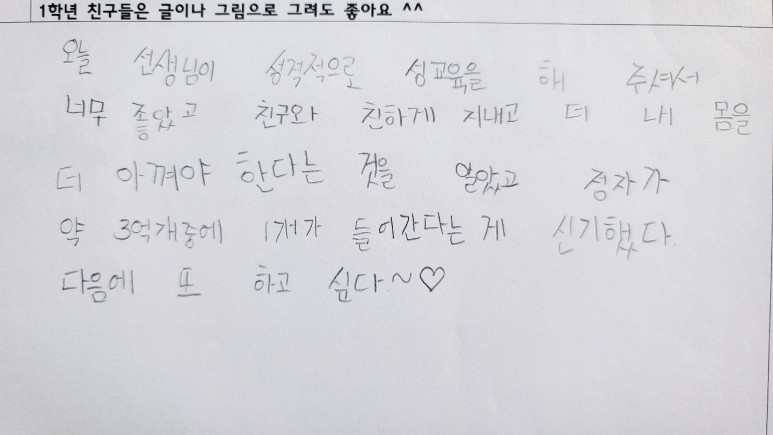 1학년 친구들은 글이나 그림으로 그려도 좋아요 ^^
오늘 선생님이 성격적으로 성교육을 해 주셔서
너무 좋았고 친구와 친하게 지내고 더 나의 몸을
더 아껴야 한다는 것을 알았고 정자가
약 3억개중에 1개가 들어간다는게 신기했다.
다음에 또 하고 싶다~♡